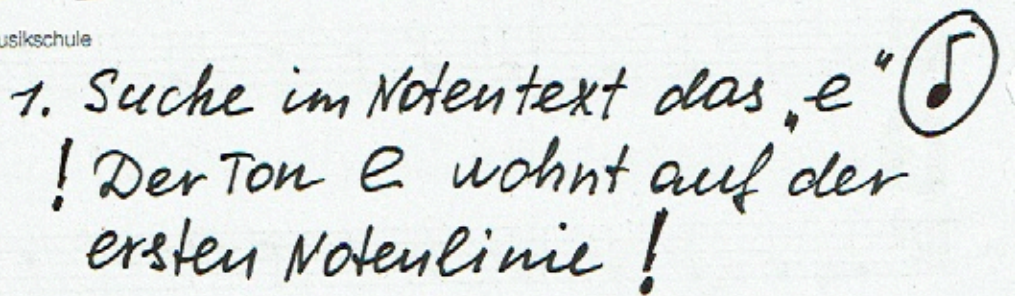 usikschule
1. Suche im Notentext das „e“
! Der Ton e wohnt auf der
ersten Notenlinie !